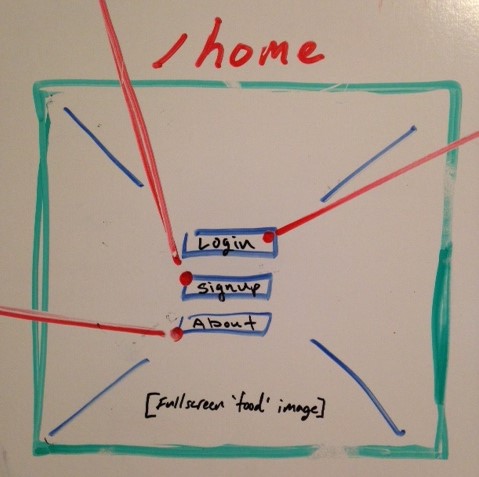 /home
Login
signup
About
[Fullscreen 'food' image]